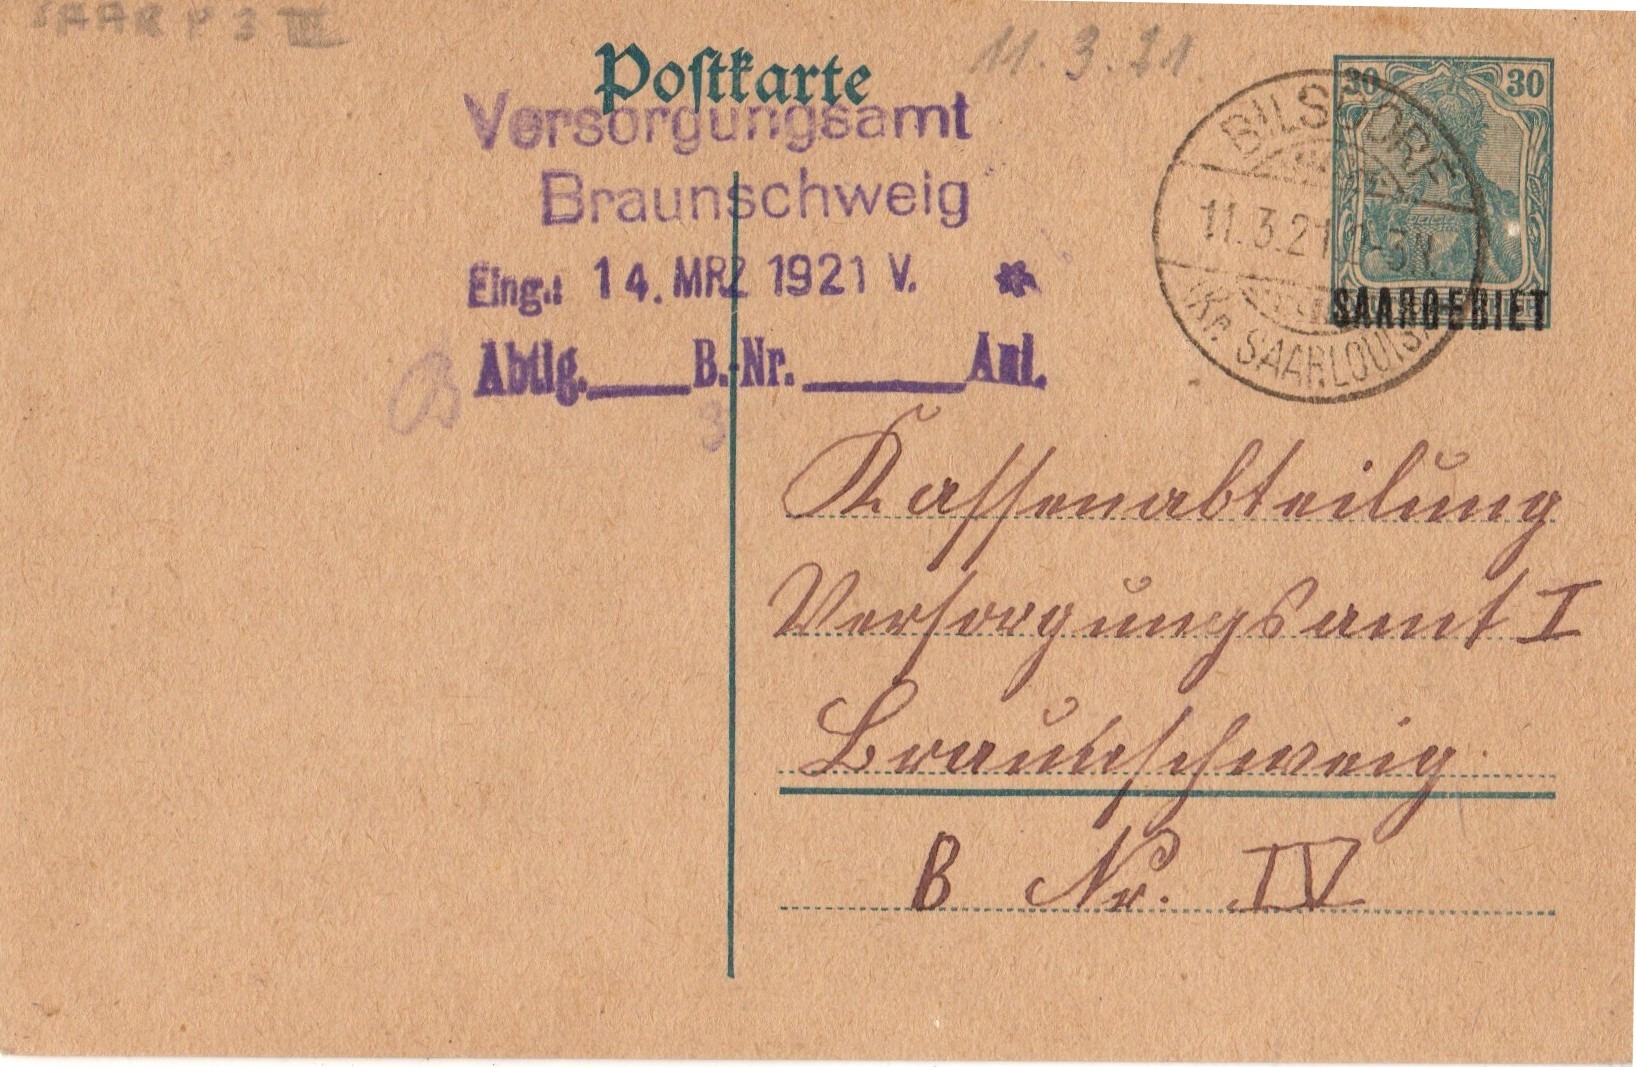 SAAR P 3 III
11.3.21.
Postkarte
30 30
SAARGEBIET
BILSDORF
11.3.21
(Kr. SAARLOUIS)
Versorgungsamt
Braunschweig
Eing.: 14. MRZ 1921 V. *
Abtlg.____B.-Nr.______Anl.
3
Kassenabteilung
Versorgungsamt I
Braunschweig.
B Nr. IV